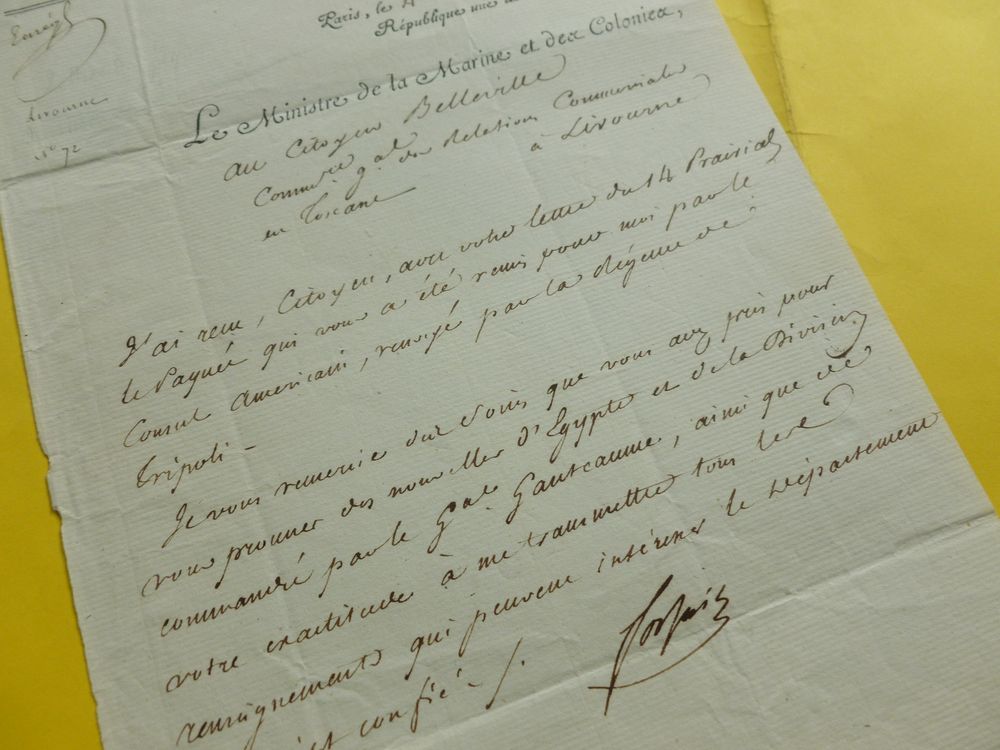 Enrég
Livourne
N° 72
Paris, le
République une
Le Ministre de la Marine et des Colonies,
au Citoyen Belleville
Commre gal des Relations Commerciales
en Toscane à Livourne
J'ai reçu, Citoyen, avec votre lettre du 14 Prairial
le Paquet qui vous a été remis pour moi par le
Consul Américain, renvoyé par la Régence de
Tripoli -
Je vous remercie des soins que vous avez pris pour
vous procurer des nouvelles d'Egypte et de la Division
commandée par le Gal Ganteaume, ainsi que de
votre exactitude à me transmettre tous les
renseignements qui peuvent intéresser le Département
est confié -
Forfait